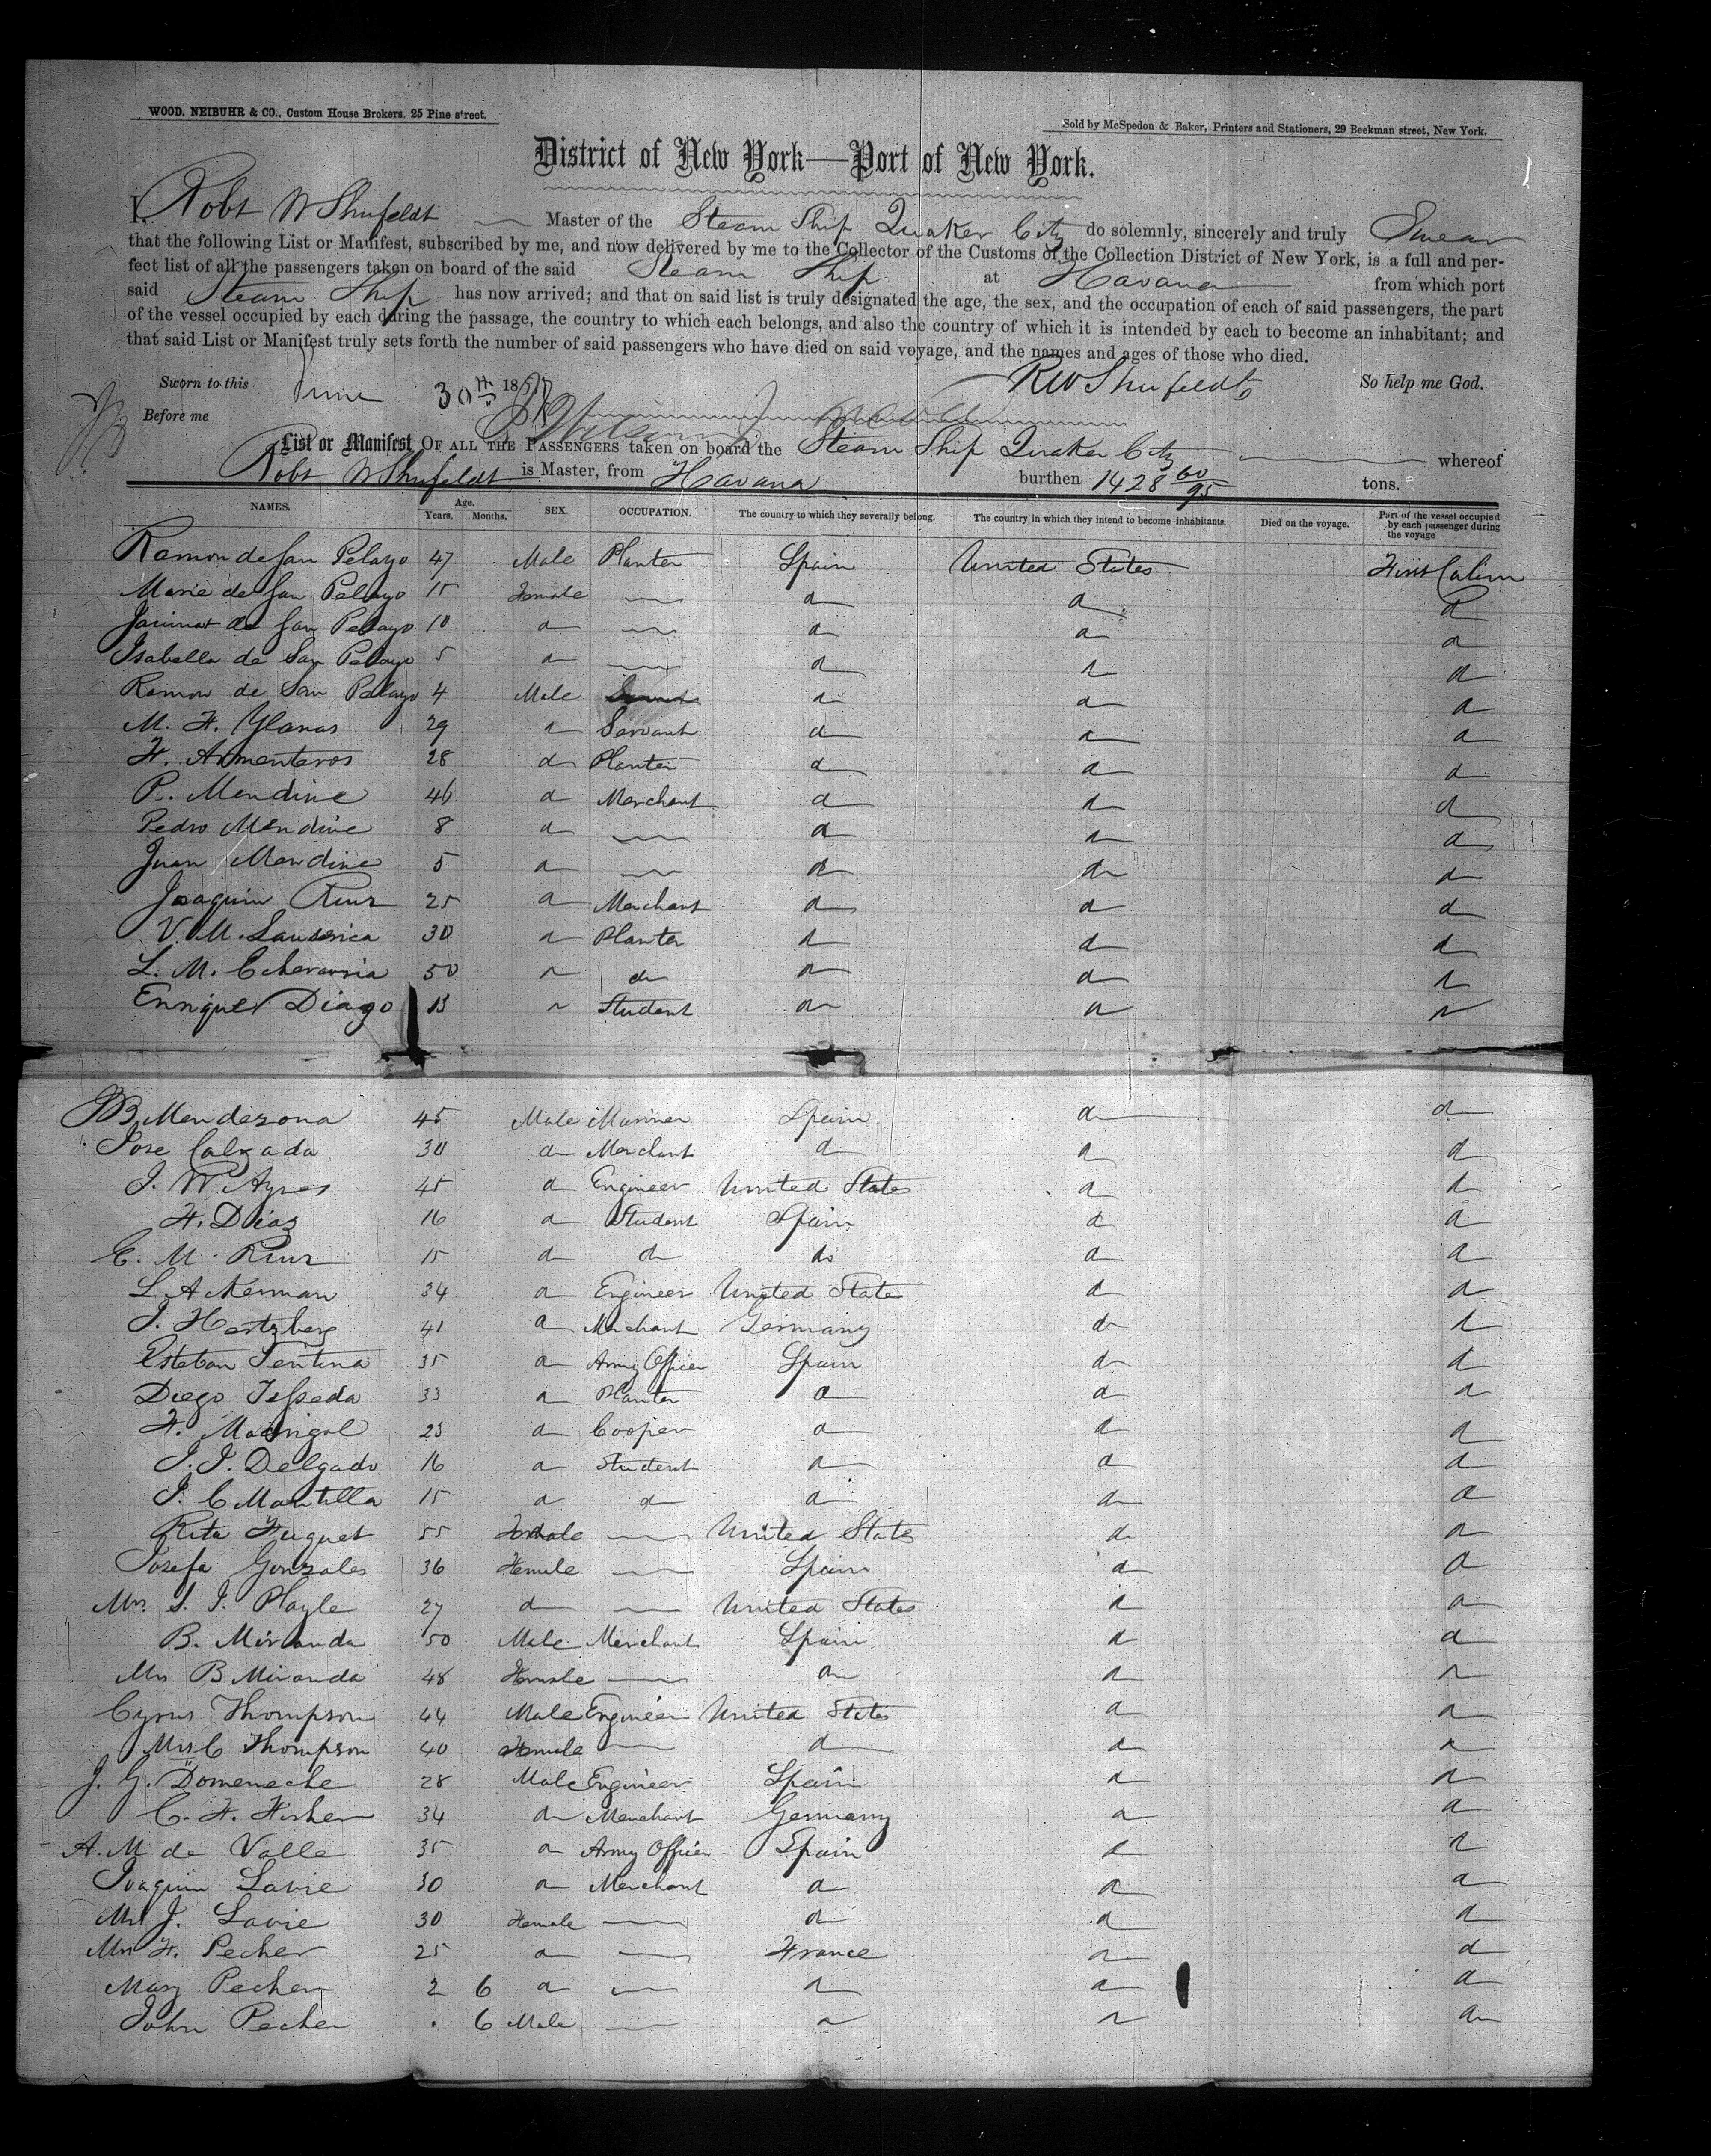 WOOD, NEIBUHR & CO., Custom House Brokers. 25 Pine street.
Sold by McSpedon & Baker, Printers and Stationers, 29 Beekman street, New York.
District of New York—Port of New York.
I, Robt W Shufeldt Master of the Steam Ship Quaker City do solemnly, sincerely and truly Swear
that the following List or Manifest, subscribed by me, and now delivered by me to the Collector of the Customs of the Collection District of New York, is a full and per-
fect list of all the passengers taken on board of the said Steam Ship at Havana from which port
said Steam Ship has now arrived; and that on said list is truly designated the age, the sex, and the occupation of each of said passengers, the part
of the vessel occupied by each during the passage, the country to which each belongs, and also the country of which it is intended by each to become an inhabitant; and
that said List or Manifest truly sets forth the number of said passengers who have died on said voyage, and the names and ages of those who died.
Sworn to this June 30th 1857 RW Shufeldt So help me God.
Before me
List or Manifest OF ALL THE PASSENGERS taken on board the Steam Ship Quaker City whereof
Robt W Shufeldt is Master, from Havana burthen 1428 60/95 tons.
NAMES. Age. Years. Months. SEX. OCCUPATION. The country to which they severally belong. The country in which they intend to become inhabitants. Died on the voyage. Part of the vessel occupied by each passenger during the voyage
Ramon de San Pelayo 47 Male Planter Spain United States First Cabin
Marie de San Pelayo 15 Female — d d d
de San Pelayo 10 d — d d d
Isabella de San Pelayo 5 d — d d d
Ramon de San Pelayo 4 Male d d d
M. F. Ylanas 29 d Servant d d d
F. Armenteros 28 d Planter d d d
P. Mendive 46 d Merchant d d d
Pedro Mendive 8 d — d d d
Juan Mendive 5 d — d d d
Joaquin Ruiz 25 d Merchant d d d
V. M. 30 d Planter d d d
L. M. Echevarria 50 d d d d d
Enrique Diago 13 d Student d d d
B Mendezona 45 Male Mariner Spain d d
Jose Calzada 30 d Merchant d d d
J. W Ayres 45 d Engineer United States d d
F. Diaz 16 d Student Spain d d
E. M. Ruiz 15 d d do d d
L. Ackerman 34 d Engineer United States d d
J. Hertzberg 41 d Merchant Germany d d
Esteban Tentina 35 d Army Officer Spain d d
Diego Tesseda 33 d Planter d d d
F. Madrigal 23 d Cooper d d d
J. J. Delgado 16 d Student d d d
J. C Mantilla 15 d d d d d
Rita Fuguet 55 Female — United States d d
Josefa Gonzales 36 Female — Spain d d
Mrs. S. J. Playle 27 d — United States d d
B. Miranda 50 Male Merchant Spain d d
Mrs B Miranda 48 Female — d d d
Cyrus Thompson 44 Male Engineer United States d d
Mrs C Thompson 40 Female — d d d
J. G. Domeneche 28 Male Engineer Spain d d
C. F. Fisher 34 d Merchant Germany d d
A. M de Valle 35 d Army Officer Spain d d
Joaquin Lavie 30 d Merchant d d d
Mrs J. Lavie 30 Female — d d d
Mrs F. Pecher 25 d — France d d
Mary Pecher 2 6 d — d d d
John Pecher . 6 Male — d d d